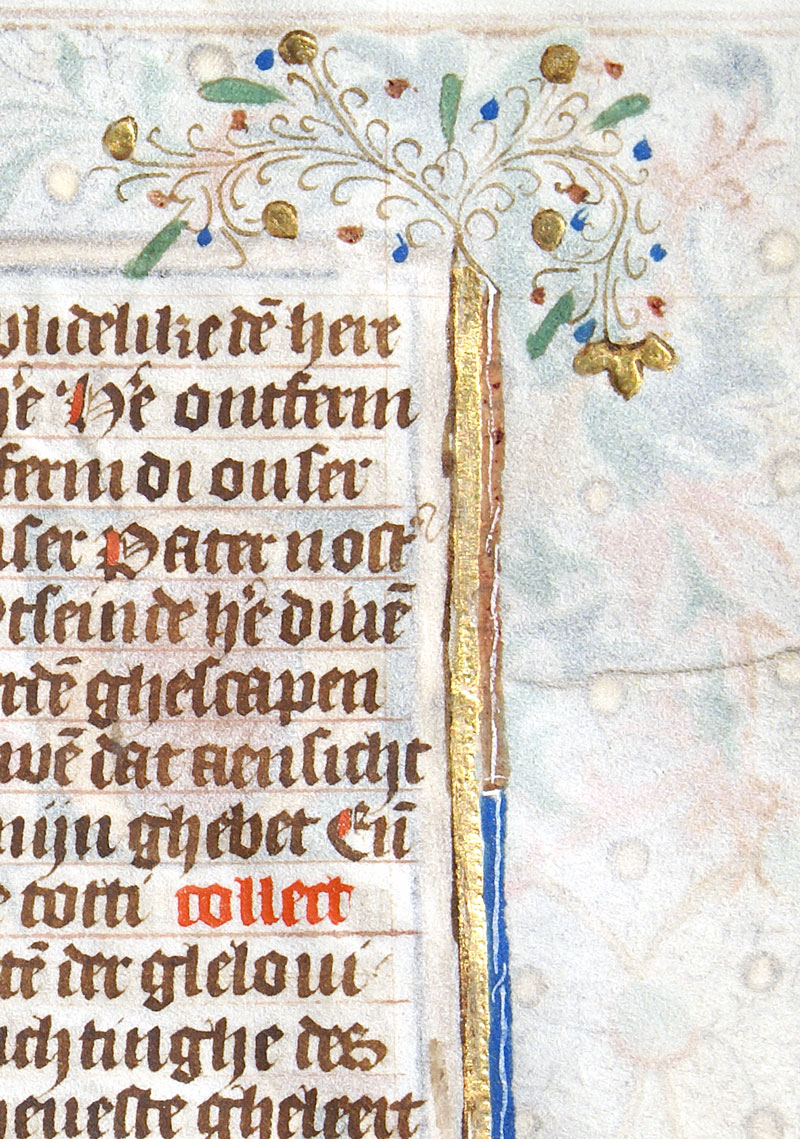 plidelike dē here
h̄e H̄e ontferm
ferm di onser
nser Pater nost
tseinde h̄e diuē
rdē ghescapen
wē dat aensicht
mijn ghebet En̄
totti collect
tē der gleloui
uchtinghe des
heueste gheleert